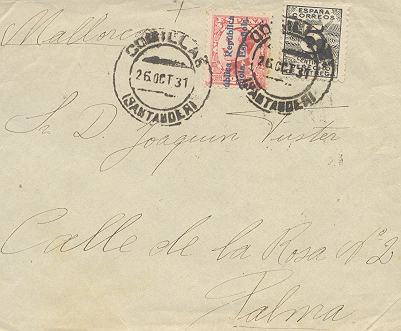 Mallorca
COMILLAS
26 OCT 31
(SANTANDER)
República
ESPAÑA
CORREOS
5
COMILLAS
26 OCT 31
(SANTANDER)
Sr. D. Joaquin
Calle de la Rosa Nº 2
Palma